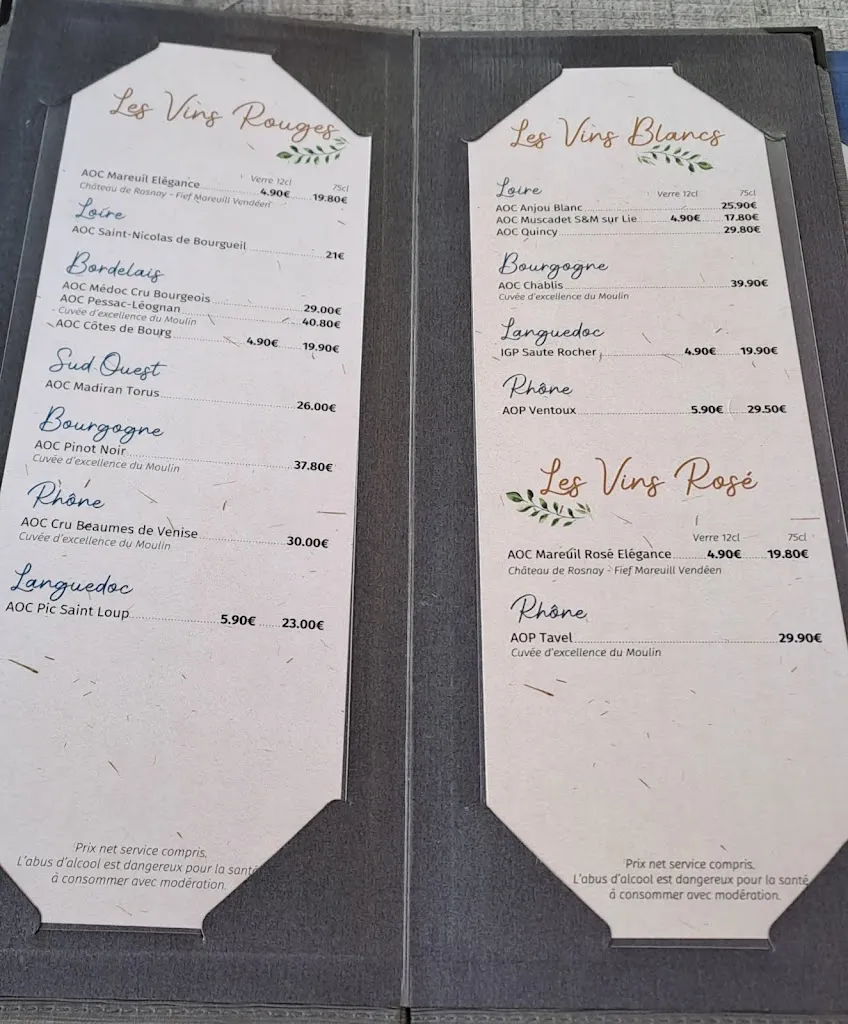 Les Vins Rouges
Verre 12cl 75cl
AOC Mareuil Elégance 4.90€ 19.80€
Château de Rosnay - Fief Mareuill Vendéen
Loire
AOC Saint-Nicolas de Bourgueil 21€
Bordelais
AOC Médoc Cru Bourgeois 29.00€
AOC Pessac-Léognan 40.80€
Cuvée d'excellence du Moulin
AOC Côtes de Bourg 4.90€ 19.90€
Sud Ouest
AOC Madiran Torus 26.00€
Bourgogne
AOC Pinot Noir 37.80€
Cuvée d'excellence du Moulin
Rhône
AOC Cru Beaumes de Venise 30.00€
Cuvée d'excellence du Moulin
Languedoc
AOC Pic Saint Loup 5.90€ 23.00€
Prix net service compris.
L'abus d'alcool est dangereux pour la santé
à consommer avec modération.
Les Vins Blancs
Loire Verre 12cl 75cl
AOC Anjou Blanc 25.90€
AOC Muscadet S&M sur Lie 4.90€ 17.80€
AOC Quincy 29.80€
Bourgogne
AOC Chablis 39.90€
Cuvée d'excellence du Moulin
Languedoc
IGP Saute Rocher 4.90€ 19.90€
Rhône
AOP Ventoux 5.90€ 29.50€
Les Vins Rosé
Verre 12cl 75cl
AOC Mareuil Rosé Elégance 4.90€ 19.80€
Château de Rosnay - Fief Mareuill Vendéen
Rhône
AOP Tavel 29.90€
Cuvée d'excellence du Moulin
Prix net service compris.
L'abus d'alcool est dangereux pour la santé,
à consommer avec modération.